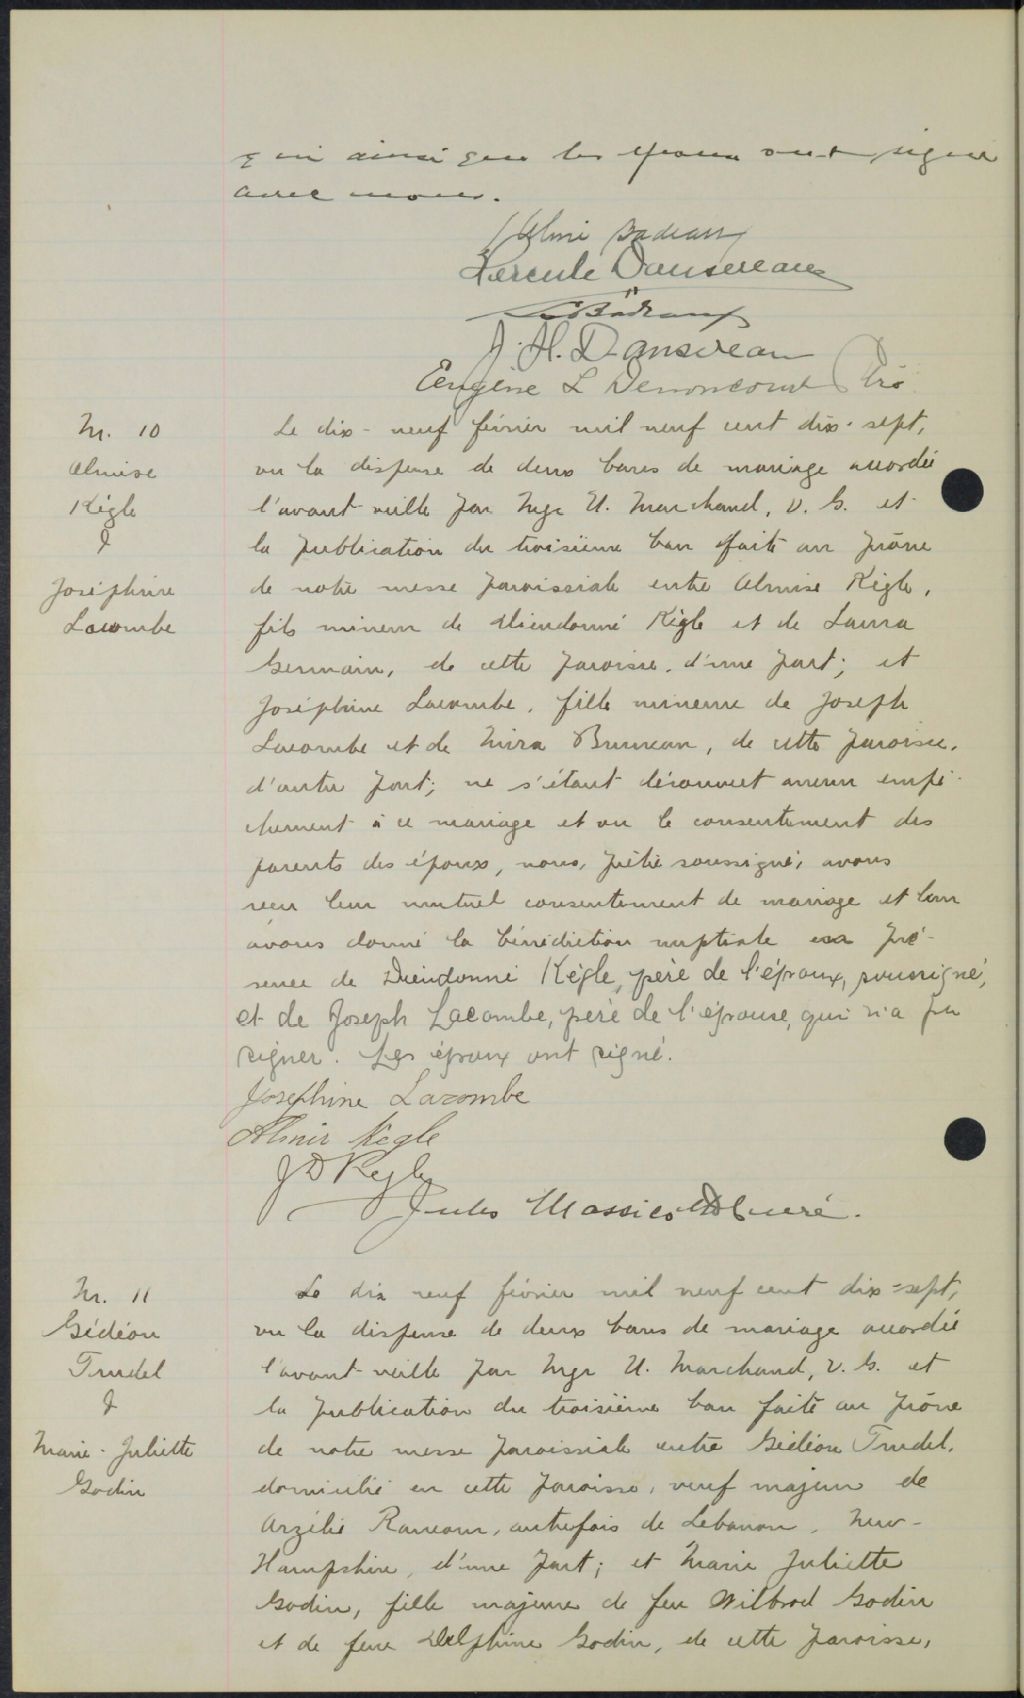 qui ainsi que les époux ont signé
avec nous.
Hercule Dansereau
J. H. Dansereau
Eugène L Denoncourt Ptre
M. 10
Almise
Règle
&
Joséphine
Lacombe
Le dix-neuf février mil neuf cent dix-sept,
vu la dispense de deux bans de mariage accordée
l'avant veille par Mgr U. Marchand, V. G. et
la publication du troisième ban faite au prône
de notre messe paroissiale entre Almise Règle,
fils mineur de Dieudonné Règle et de Laura
Germain, de cette paroisse, d'une part; et
Joséphine Lacombe, fille mineure de Joseph
Lacombe et de Mira Bruneau, de cette paroisse,
d'autre part; ne s'étant découvert aucun empê-
chement à ce mariage et vu le consentement des
parents des époux, nous, prêtre soussigné, avons
reçu leur mutuel consentement de mariage et leur
avons donné la bénédiction nuptiale en pré-
sence de Dieudonné Règle, père de l'époux, soussigné,
et de Joseph Lacombe, père de l'épouse, qui n'a pu
signer. Les époux ont signé.
Josephine Lacombe
Almir Regle
J D Regle
Jules Massicotte curé.
M. 11
Gédéon
Trudel
&
Marie-Juliette
Godin
Le dix neuf février mil neuf cent dix-sept,
vu la dispense de deux bans de mariage accordée
l'avant-veille par Mgr U. Marchand, V. G. et
la publication du troisième ban faite au prône
de notre messe paroissiale entre Gédéon Trudel,
domicilié en cette paroisse, veuf majeur de
Arzélie Rancour, autrefois de Lebanon, New-
Hampshire, d'une part; et Marie Juliette
Godin, fille majeure de feu Wilbrod Godin
et de feue Delphine Godin, de cette paroisse,